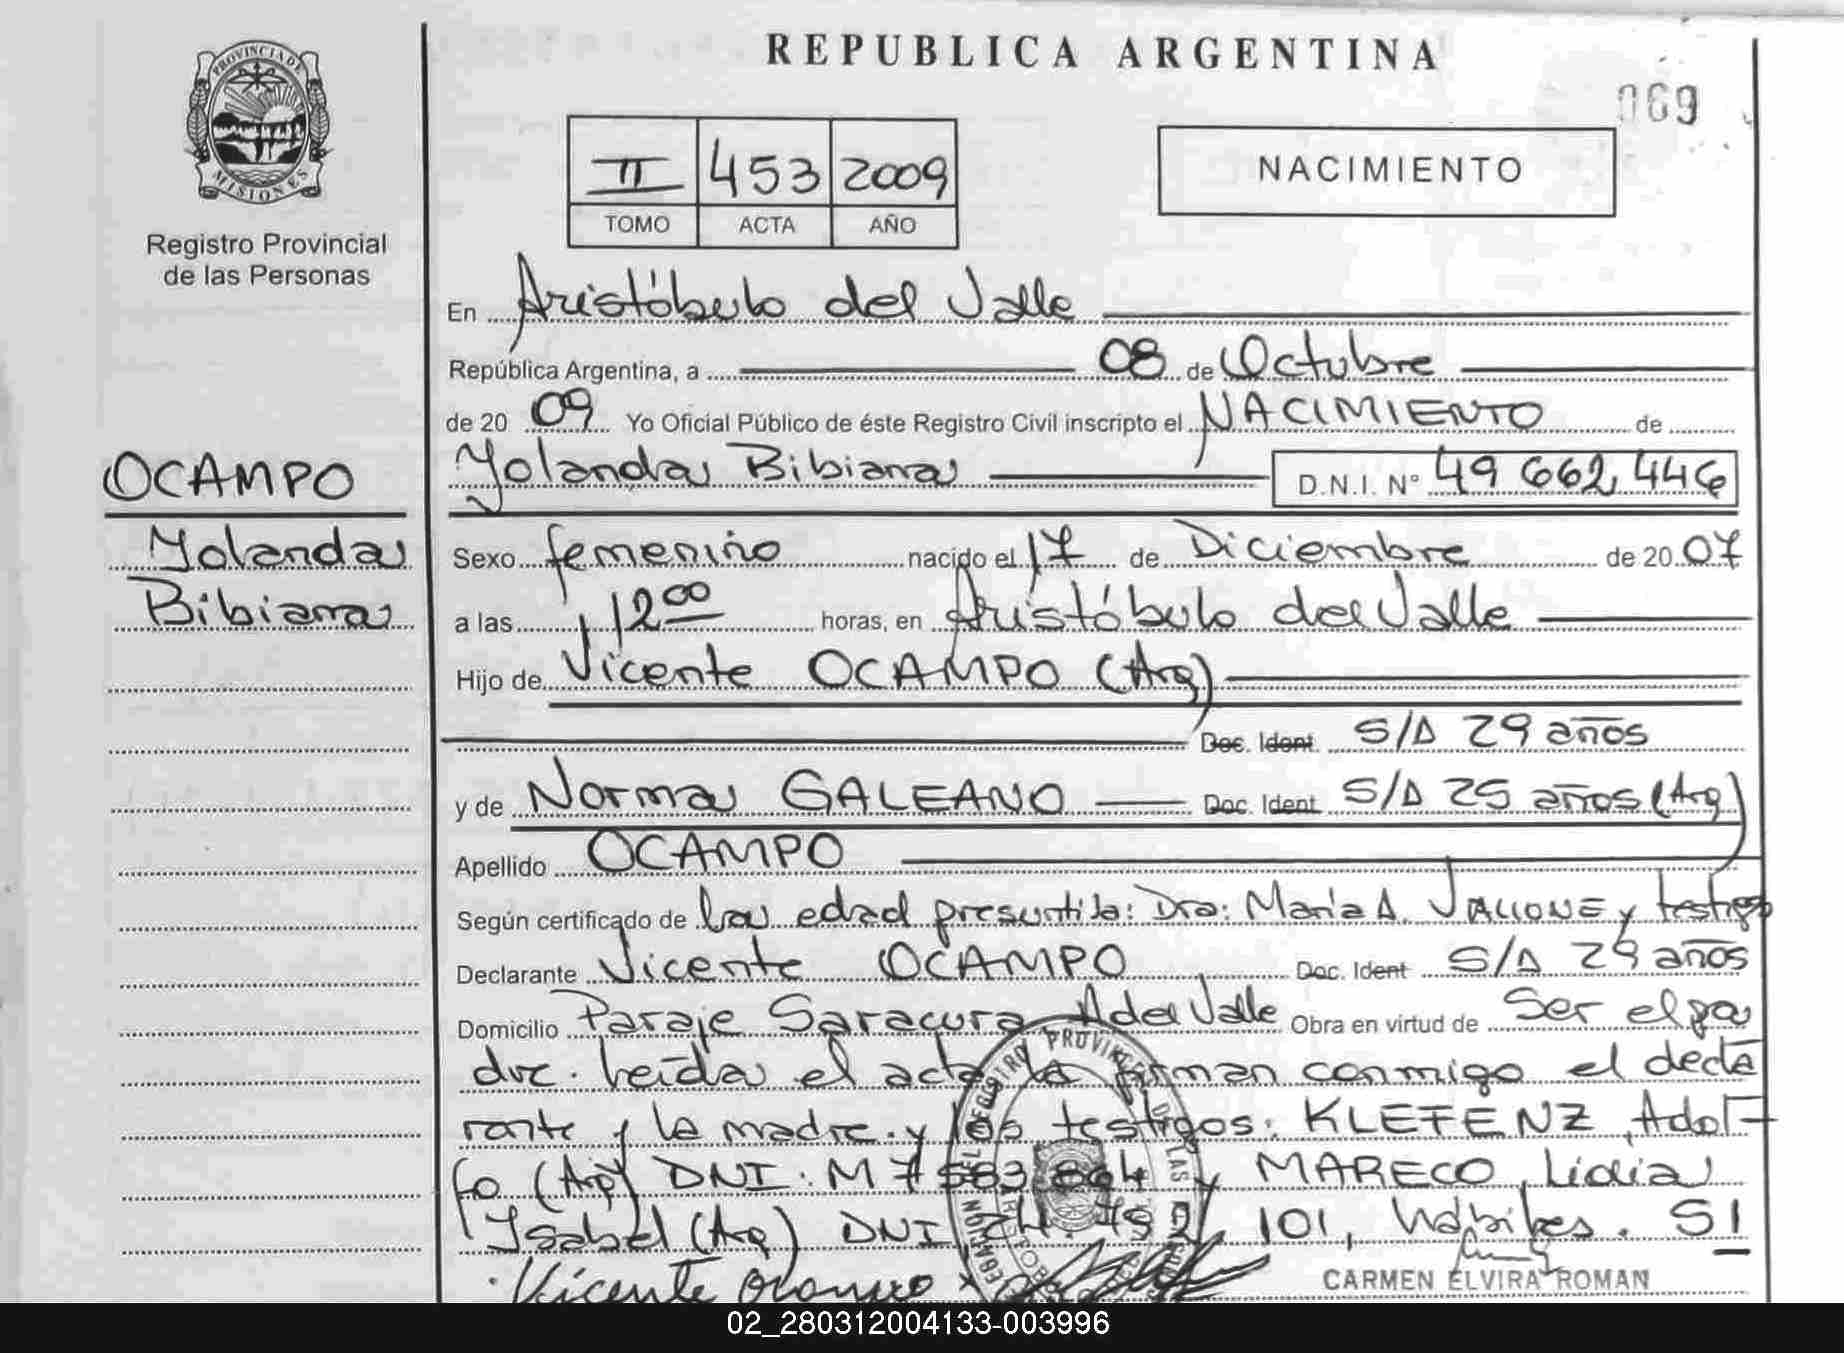 PROVINCIA DE
MISIONES
Registro Provincial
de las Personas
OCAMPO
Yolanda
Bibiana
REPUBLICA ARGENTINA
069
II 453 2009
TOMO ACTA AÑO
NACIMIENTO
En Aristóbulo del Valle
República Argentina, a 08 de Octubre
de 20 09 Yo Oficial Público de éste Registro Civil inscripto el NACIMIENTO de
Yolanda Bibiana D.N.I. N° 49 662 446
Sexo femenino nacido el 17 de Diciembre de 20 07
a las 12 00 horas, en Aristóbulo del Valle
Hijo de Vicente OCAMPO (Arg)
Doc. Ident. S/D 29 años
y de Norma GALEANO Doc. Ident S/D 25 años (Arg)
Apellido OCAMPO
Según certificado de la edad presuntiva: Dra: María A. y testigos
Declarante Vicente OCAMPO Doc. Ident S/D 29 años
Domicilio Paraje Saracura A del Valle Obra en virtud de Ser el pa
dre. Leída el acta la firman conmigo el decla
rante y la madre y los testigos: KLEFENZ, Adol
fo (Arg) DNI: M 7 583 864 y MARECO, Lidia
Ysabel (Arg) DNI 101, habiles. SI
Vicente Ocampo
CARMEN ELVIRA ROMAN
02_280312004133-003996